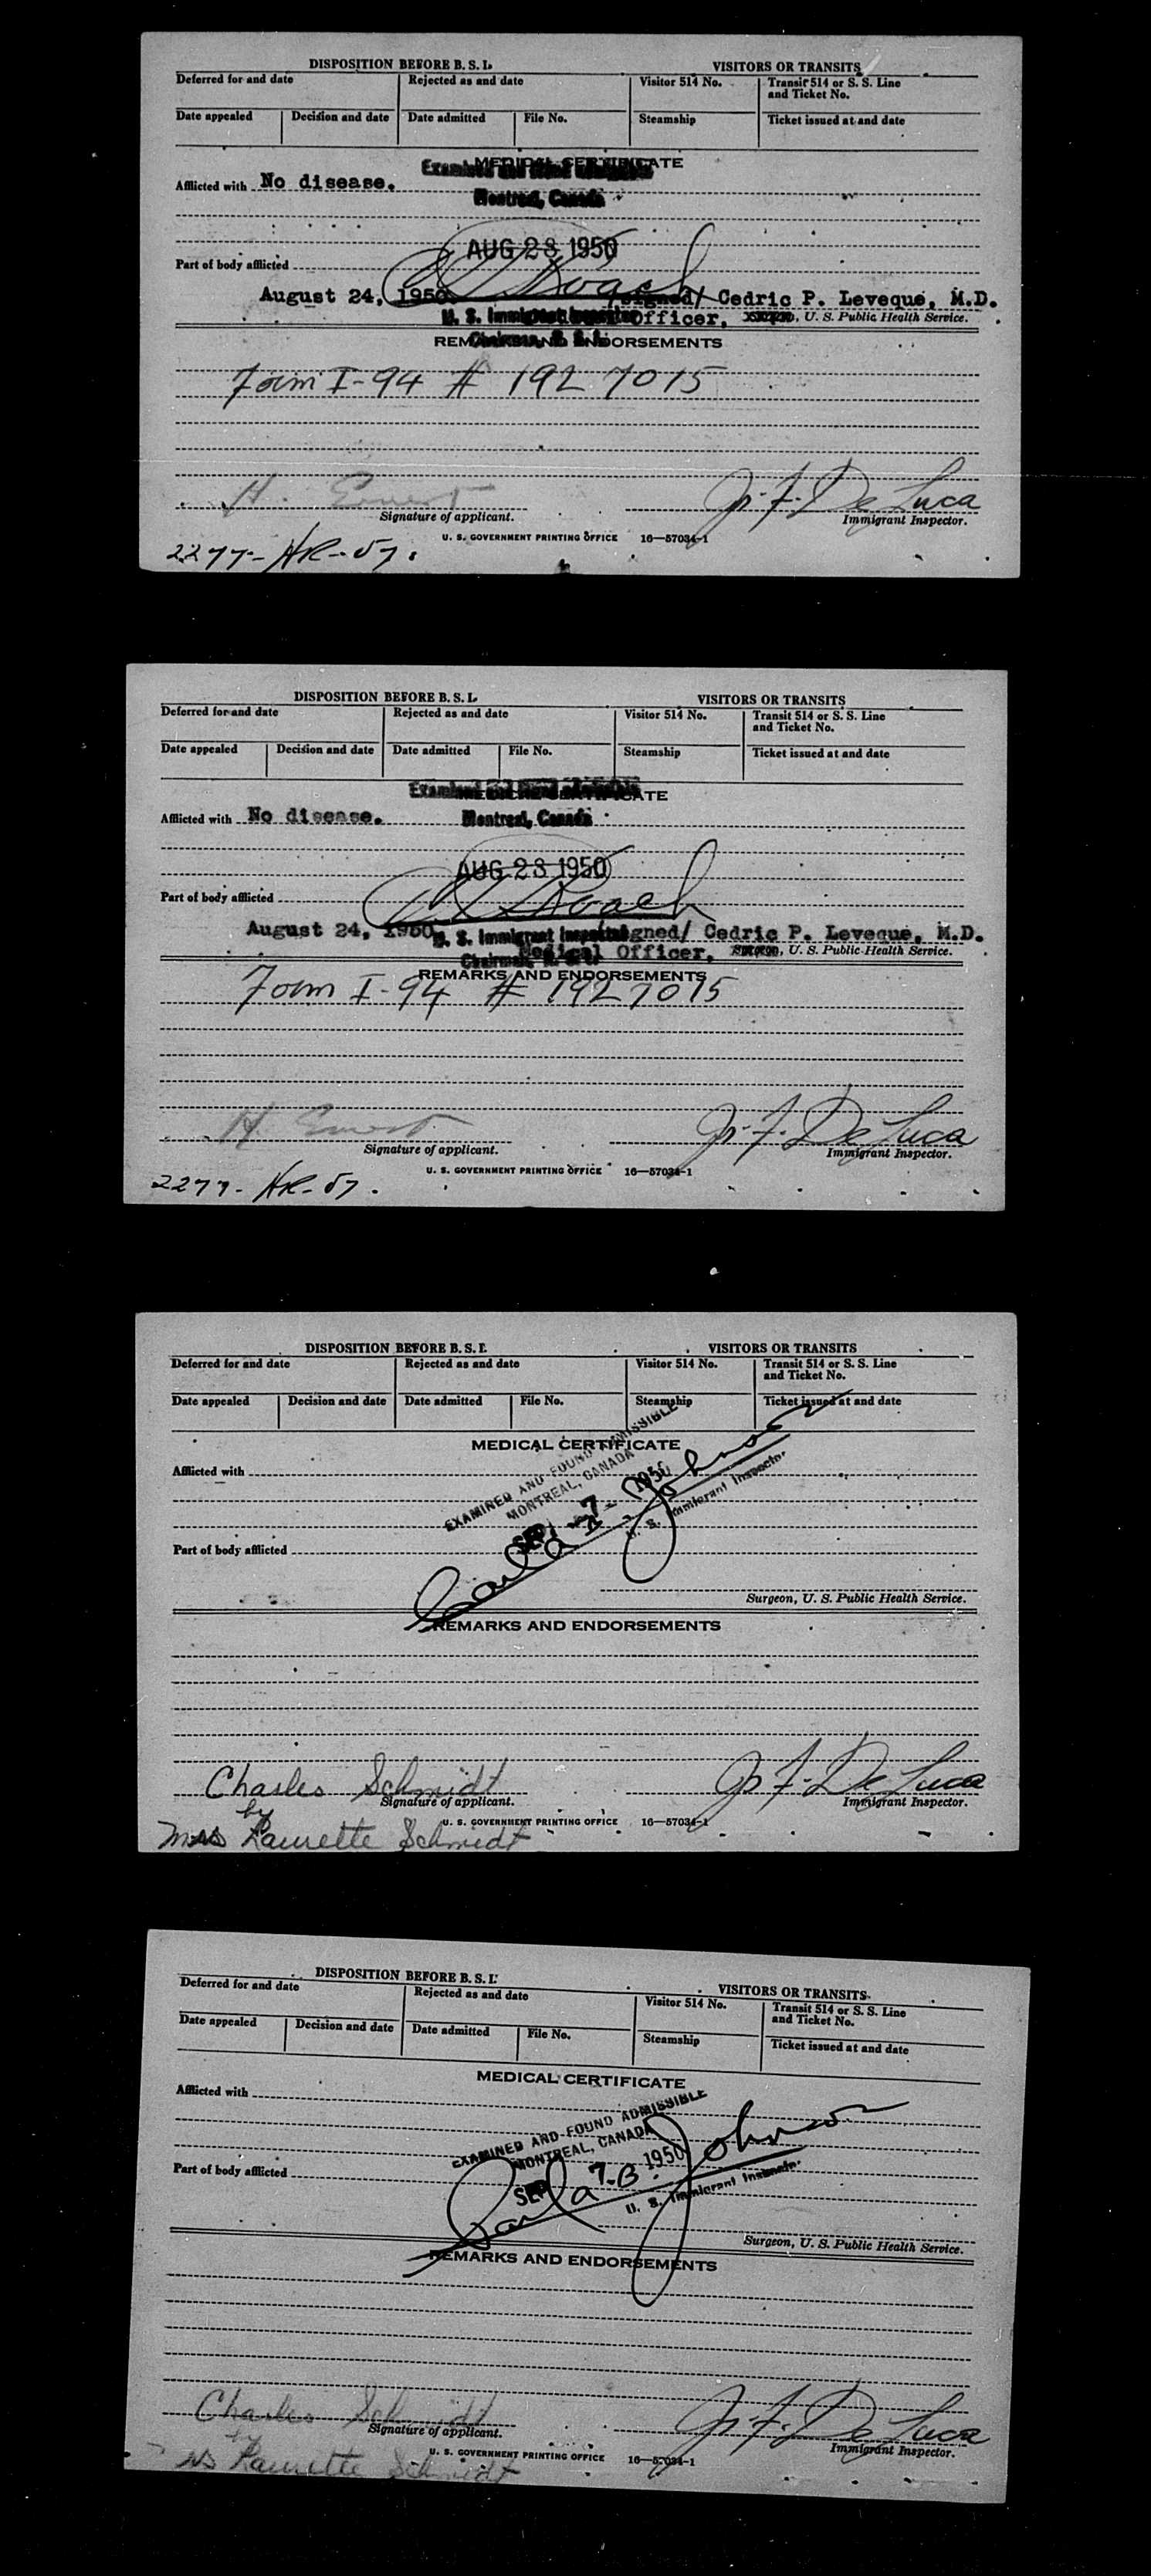 DISPOSITION BEFORE B. S. I. VISITORS OR TRANSITS
Deferred for and date Rejected as and date Visitor 514 No. Transit 514 or S. S. Line and Ticket No.
Date appealed Decision and date Date admitted File No. Steamship Ticket issued at and date
MEDICAL CERTIFICATE
Examined and found admissible
Afflicted with No disease.
Montreal, Canada
AUG 28 1950
Part of body afflicted
August 24, 1950 /signed/ Cedric P. Leveque, M.D.
U. S. Immigrant Inspector Officer, U. S. Public Health Service.
Chairman, B. S. I.
REMARKS AND ENDORSEMENTS
Form I-94 # 1927015
H. Ernest J. F. De Luca
Signature of applicant. Immigrant Inspector.
U. S. GOVERNMENT PRINTING OFFICE 16—57034-1
2277-HR-57.
DISPOSITION BEFORE B. S. I. VISITORS OR TRANSITS
Deferred for and date Rejected as and date Visitor 514 No. Transit 514 or S. S. Line and Ticket No.
Date appealed Decision and date Date admitted File No. Steamship Ticket issued at and date
Examined and found admissible
Afflicted with No disease.
Montreal, Canada
AUG 28 1950
Part of body afflicted
August 24, 1950 /signed/ Cedric P. Leveque, M.D.
U. S. Immigrant Inspector
Medical Officer, U. S. Public Health Service.
Chairman,
REMARKS AND ENDORSEMENTS
Form I-94 # 1927015
H. Ernest J. F. De Luca
Signature of applicant. Immigrant Inspector.
U. S. GOVERNMENT PRINTING OFFICE 16—57034-1
2277-HR-57.
DISPOSITION BEFORE B. S. I. VISITORS OR TRANSITS
Deferred for and date Rejected as and date Visitor 514 No. Transit 514 or S. S. Line and Ticket No.
Date appealed Decision and date Date admitted File No. Steamship Ticket issued at and date
MEDICAL CERTIFICATE
EXAMINED AND FOUND ADMISSIBLE
MONTREAL, CANADA
Afflicted with
SEP 7- 1950
Carl a B. Johnson
U. S. Immigrant Inspector
Part of body afflicted
Surgeon, U. S. Public Health Service.
REMARKS AND ENDORSEMENTS
Charles Schmidt J. F. De Luca
Signature of applicant. Immigrant Inspector.
by
U. S. GOVERNMENT PRINTING OFFICE 16—57034-1
Mrs Laurette Schmidt
DISPOSITION BEFORE B. S. I. VISITORS OR TRANSITS
Deferred for and date Rejected as and date Visitor 514 No. Transit 514 or S. S. Line and Ticket No.
Date appealed Decision and date Date admitted File No. Steamship Ticket issued at and date
MEDICAL CERTIFICATE
Afflicted with
EXAMINED AND FOUND ADMISSIBLE
MONTREAL, CANADA
SEP 7- 1950
Carl a B. Johnson
U. S. Immigrant Inspector
Part of body afflicted
Surgeon, U. S. Public Health Service.
REMARKS AND ENDORSEMENTS
Charles Schmidt J. F. De Luca
Signature of applicant. Immigrant Inspector.
U. S. GOVERNMENT PRINTING OFFICE 16—57034-1
Mrs Laurette Schmidt